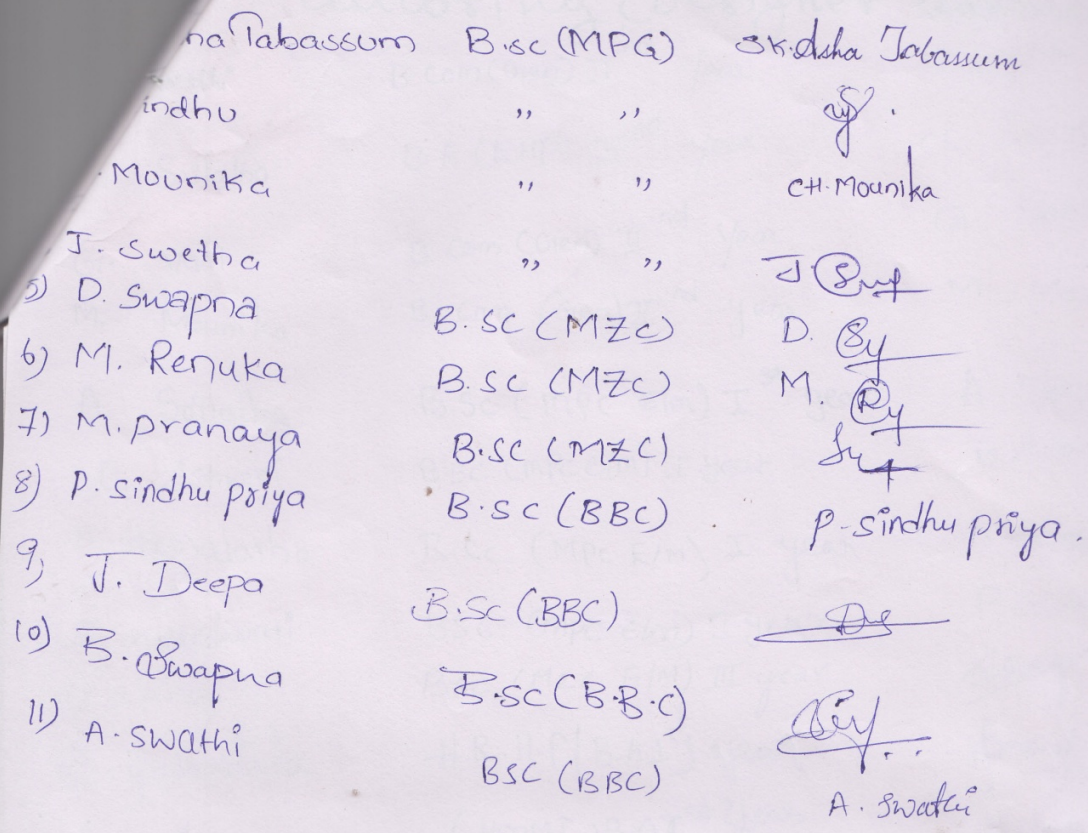 Tabassum B.sc (MPG) SK.Asha Tabassum
indhu ,, ,,
Mounika ,, ,, CH.Mounika
J. Swetha ,, ,, J.
5) D. Swapna B.SC (MZC) D.
6) M. Renuka B.SC (MZC) M.
7) M.pranaya B.SC (MZC)
8) P. Sindhu priya B.SC (BBC) P-Sindhu priya.
9) J. Deepa B.Sc (BBC)
10) B. Swapna B.SC (B.B.C)
11) A. Swathi BSC (BBC) A. Swathi